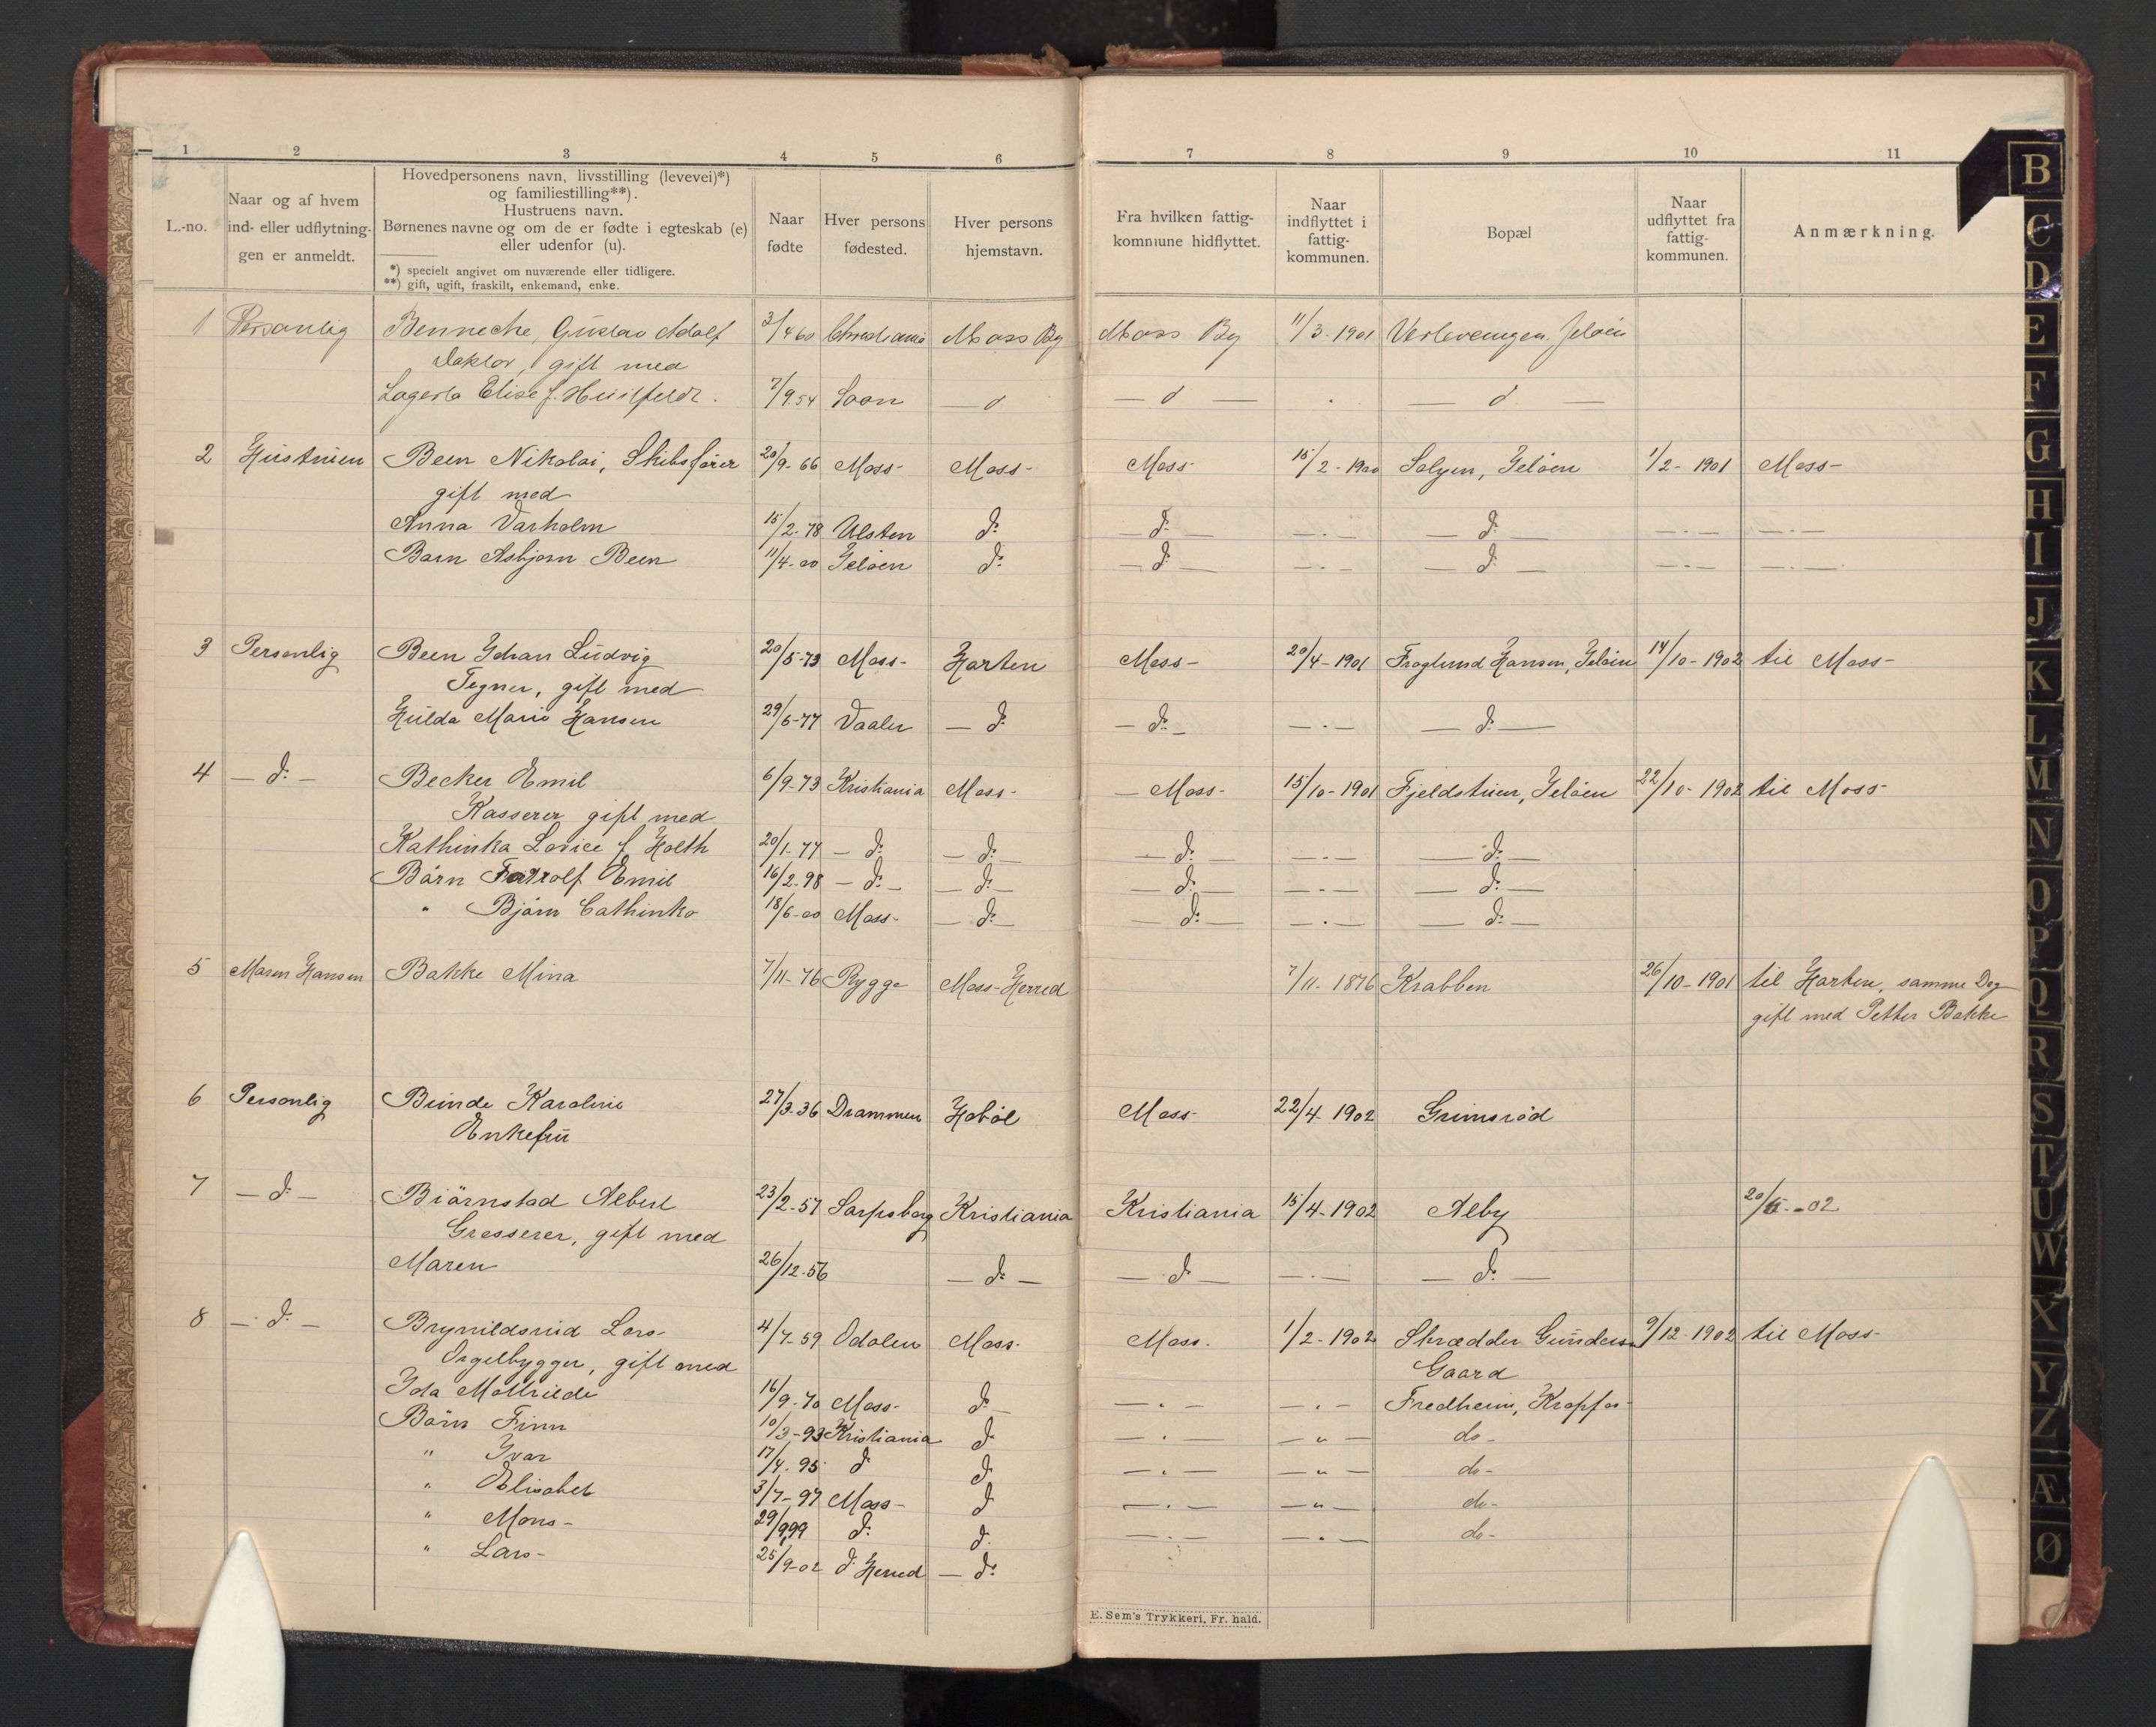 1 2 3 4 5 6 7 8 9 10 11
L.-no.
Naar og af hvem
ind- eller udflytnin-
gen er anmeldt.
Hovedpersonens navn, livsstilling (levevei)*)
og familiestilling**).
Hustruens navn.
Børnenes navne og om de er fødte i egteskab (e)
eller udenfor (u).
*) specielt angivet om nuværende eller tidligere.
**) gift, ugift, fraskilt, enkemand, enke.
Naar
fødte
Hver persons
fødested.
Hver persons
hjemstavn.
Fra hvilken fattig-
kommune hidflyttet.
Naar
indflyttet i
fattig-
kommunen.
Bopæl
Naar
udflyttet fra
fattig-
kommunen.
Anmærkning.
1 Personlig Bennecke, Gustav Adolf 3/4 60 Christiania Moss By Moss By 11/3-1901 Jeløen
Doktor, gift med
Elise f. Huitfeldt. 7/9 54 Soon — d — d — . — d —
2 Hustruen Been Nikolai, Skibsfører 20/9-66 Moss- Moss- Moss- 15/2-1900 Solyen, Jeløen 1/2-1901 Moss-
gift med
Anna Varholm 15/2-78 Ulsten do d: — —.— — d: — —.— —.—
Barn Asbjørn Been 11/4-00 Jeløen d: — d: — —.— — d: — —.— —.—
3 Personlig Been Johan Ludvig 20/5-73 Moss- Horten Moss- 20/4-1901 Froglund Hansen, Jeløen 14/10-1902 til Moss-
Tegner, gift med
Hulda Marie Hansen 29/6-77 Vaaler — d: — d: — —.— — d: —
4 — d: — Becker Emil 6/9-73 Kristiania Moss- — Moss- 15/10-1901 Fjeldstuen, Jeløen 22/10-1902 til Moss-
Kasserer gift med
Kathinka Lovice f Holth 20/1-77 — d: — d: — — d: — —.— — d: —
Børn Emil 16/2-98 — d: — — d: — — d: — —.— — d: —
" Bjørn Cathinko 18/6-00 Moss- — d: — — d: — —.— — d: —
5 Maren Hansen Bakke Mina 7/11-76 Rygge Moss-Herred 7/11-1876 Krabben 26/10-1901 til Horten, samme Dag
gift med Petter Bakke
6 Personlig Bunde Karoline 27/3-36 Drammen Hobøl Moss- 22/4-1902 Grimsrød
Enkefru
7 — d: — Biörnstad Albert 23/2-57 Sarpsborg Kristiania Kristiania 15/4-1902 Alby 20/5-02
Grosserer, gift med
Maren 26/12-56 — d: — — d — —.— — d: —
8 — d: — Brynildsrud Lars- 4/7-59 Odalen Moss- Moss. 1/2-1902 Skrædder Gundersen 9/12-1902 til Moss-
Orgelbygger, gift med Gaard
Ida Mathilde 16/9-70 Moss- d: — —.— —.— Fredheim, Krapfos-
Børn Finn 10/3-93 Kristiania d —.— — " — do-
" Ivar 17/4-95 d d —.— — " — do-
" Elisabet 3/7-97 Moss- d —.— — " — do-
" Mons- 29/9 99 d: d. —.— —.— do-
" Lars- 25/9-02 d. Herred — d:
E. Sem's Trykkeri, Fr. hald.
B
C
D
E
F
G
H
I
J
K
L
M
N
O
P
Q
R
S
T
U
W
X
Y
Z
Æ
Ø